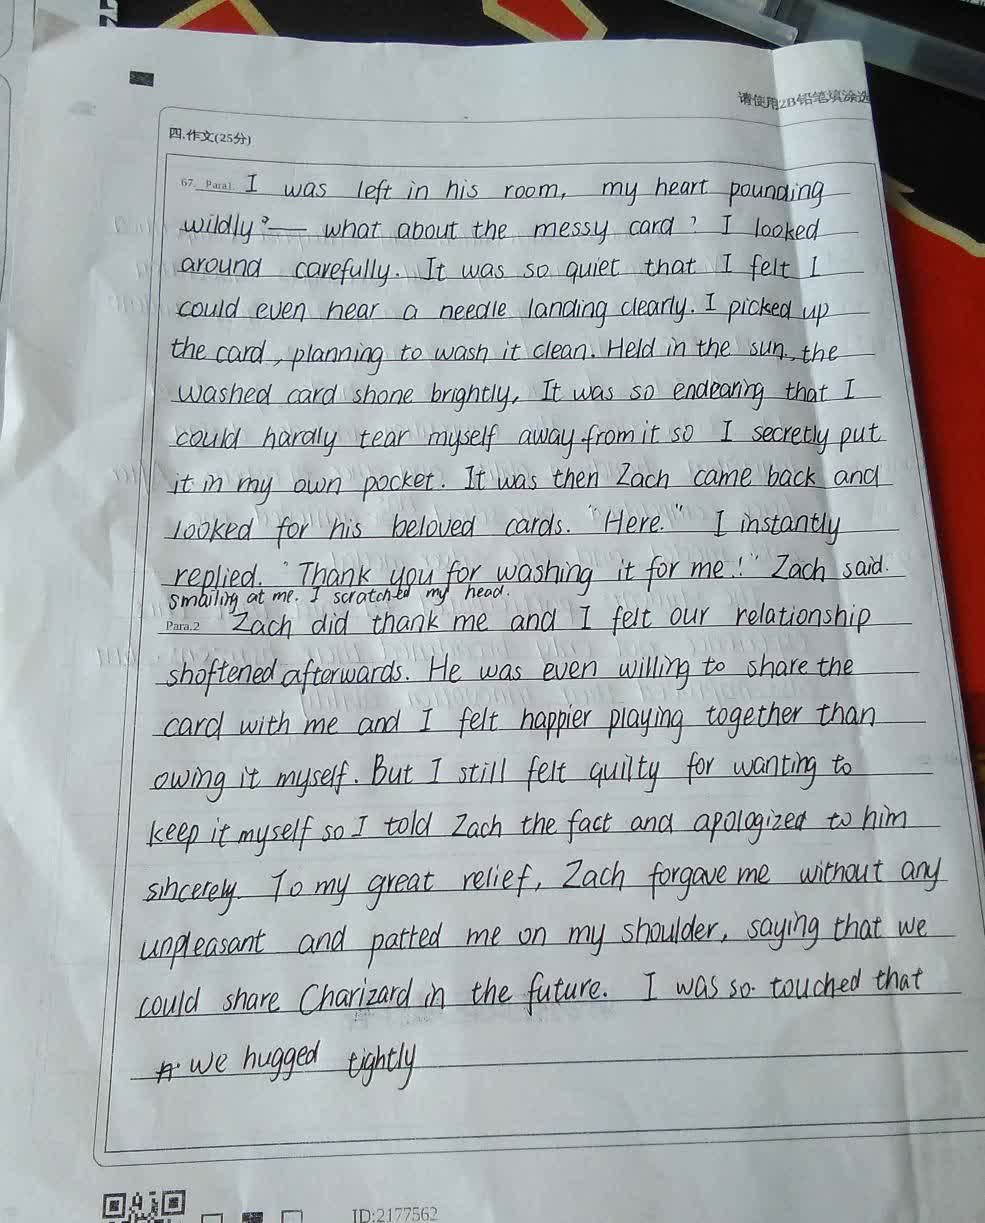 请使用2B铅笔填涂选
四.作文(25分)
67. Para1. I was left in his room, my heart pounding
wildly — what about the messy card? I looked
around carefully. It was so quiet that I felt I
could even hear a needle landing clearly. I picked up
the card, planning to wash it clean. Held in the sun, the
washed card shone brightly, It was so endearing that I
could hardly tear myself away from it so I secretly put
it in my own pocket. It was then Zach came back and
looked for his beloved cards. "Here." I instantly
replied. "Thank you for washing it for me!" Zach said.
smailing at me. I scratched my head.
Para.2 Zach did thank me and I felt our relationship
shoftened afterwards. He was even willing to share the
card with me and I felt happier playing together than
owing it myself. But I still felt guilty for wanting to
keep it myself so I told Zach the fact and apologized to him
sincerely. To my great relief, Zach forgave me without any
unpleasant and patted me on my shoulder, saying that we
could share Charizard in the future. I was so touched that
we hugged tightly
ID:2177562